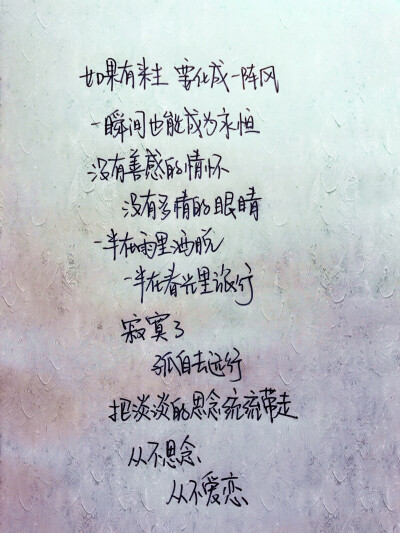 如果有来生 要化成一阵风
一瞬间也能成为永恒
没有善感的情怀
没有多情的眼睛
一半在雨里洒脱
一半在春光里旅行
寂寞了
孤自去远行
把淡淡的思念统统带走
从不思念、
从不爱恋、